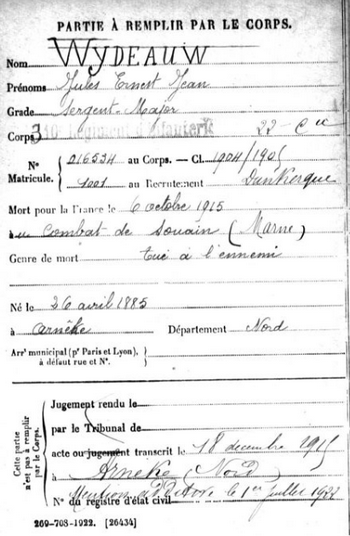 PARTIE À REMPLIR PAR LE CORPS.
Nom WYDEAUW
Prénoms Jules Ernest Jean
Grade Sergent-Major
Corps 310e Régiment d'Infanterie 22e Cie
N° Matricule. { 016534 au Corps. — Cl. 1904/1905
1001 au Recrutement Dunkerque
Mort pour la France le 6 octobre 1915
à au Combat de Souain (Marne)
Genre de mort tué à l'ennemi
Né le 26 avril 1885
à Arnèke Département Nord
Arrt municipal (pr Paris et Lyon), à défaut rue et N°. {
Cette partie n'est pas à remplir par le Corps.
Jugement rendu le
par le Tribunal de
acte ou jugement transcrit le 18 decembre 1915
à Arneke (Nord)
N° du registre d'état civil Mention 1er juillet 1922
269-708-1922. [26434]